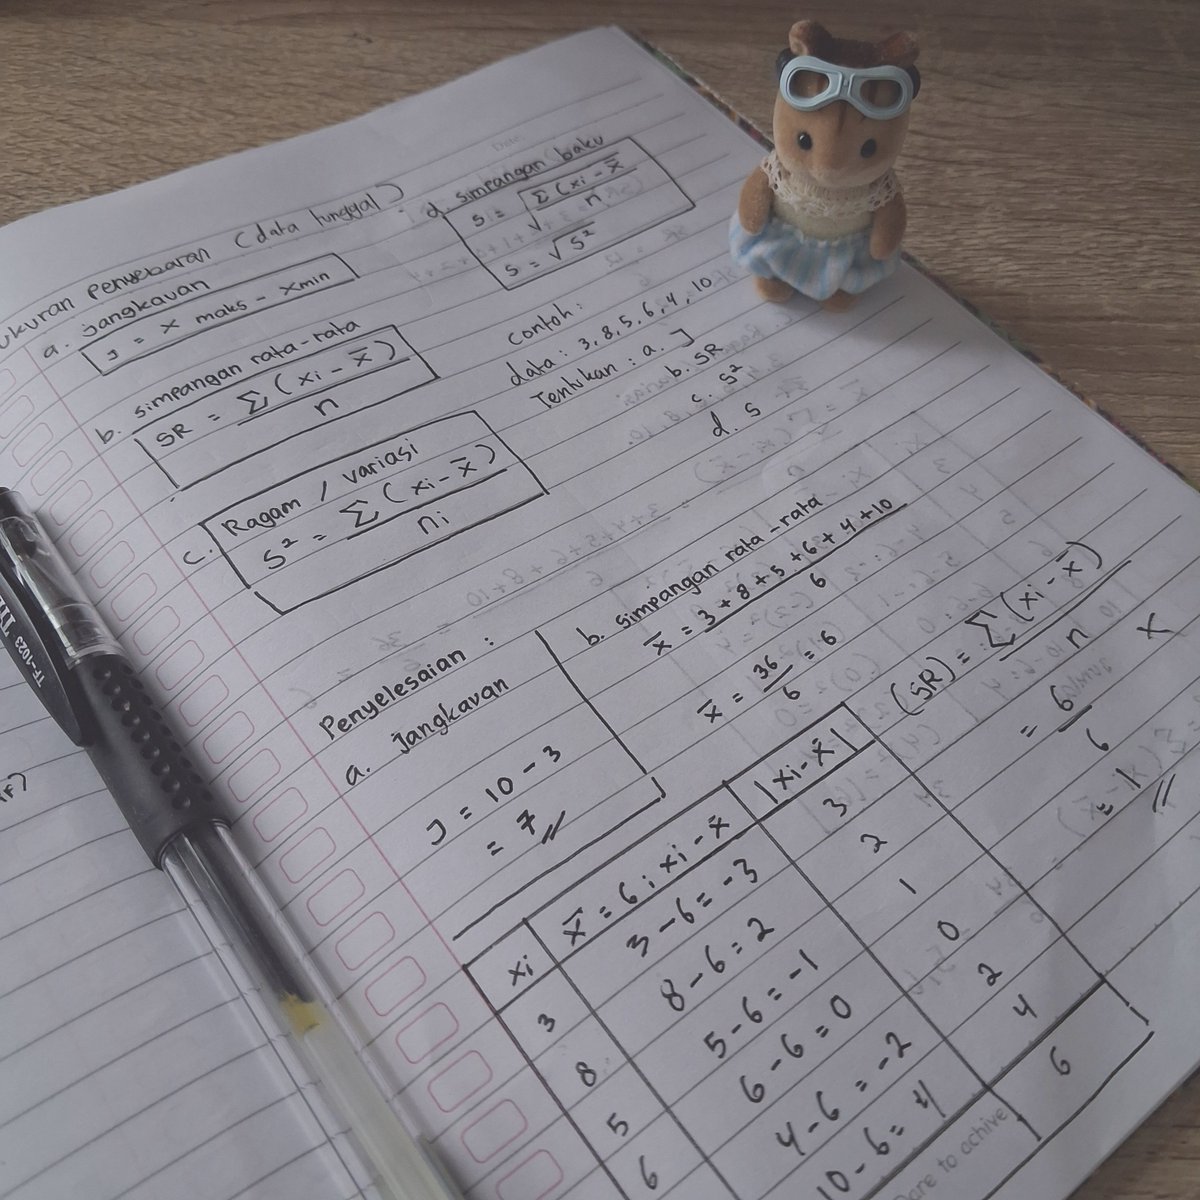 ukuran penyebaran (data tunggal)
a. jangkauan
J = x maks - xmin
b. simpangan rata-rata
SR = Σ(xi - x̄)
n
c. Ragam / variasi
S² = Σ(xi - x̄)
ni
d. simpangan baku
S = √Σ(xi - x̄
n
S = √S²
contoh:
data : 3, 8, 5, 6, 4, 10
Tentukan : a. J
b. SR
c. S²
d. S
Penyelesaian :
a. jangkauan
J = 10 - 3
= 7
b. simpangan rata-rata
x̄ = 3 + 8 + 5 + 6 + 4 + 10
6
x̄ = 36/6 = 6
(SR) = Σ(xi - x̄)
n
= 6 X
6
= 1
xi x̄ = 6 ; xi - x̄ |xi - x̄|
3 3 - 6 = -3 3
8 8 - 6 = 2 2
5 5 - 6 = -1 1
6 6 - 6 = 0 0
4 - 6 = -2 2
10 - 6 = 4 4
6
Dare to achive
TF-1023